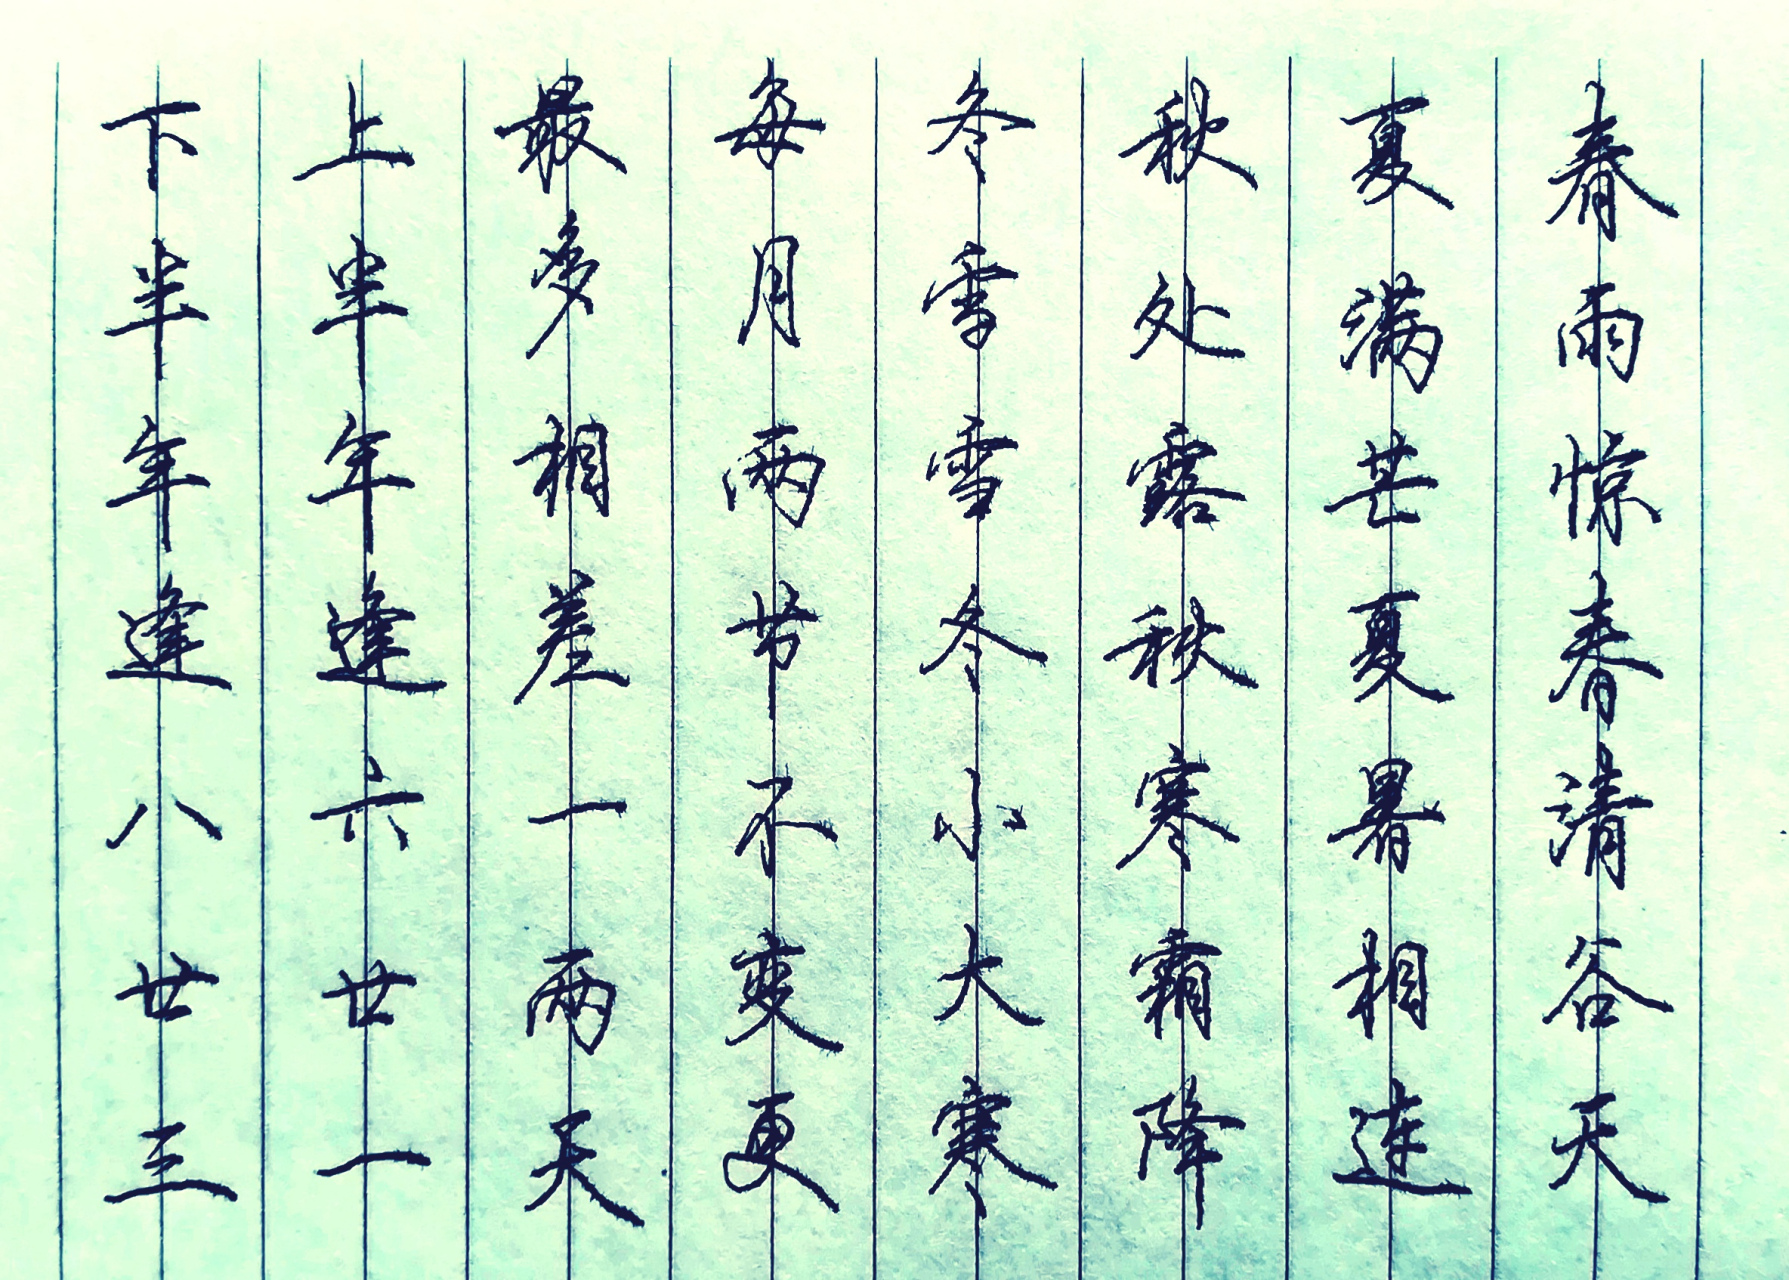 春雨惊春清谷天
夏满芒夏暑相连
秋处露秋寒霜降
冬雪雪冬小大寒
每月两节不变更
最多相差一两天
上半年逢六廿一
下半年逢八廿三